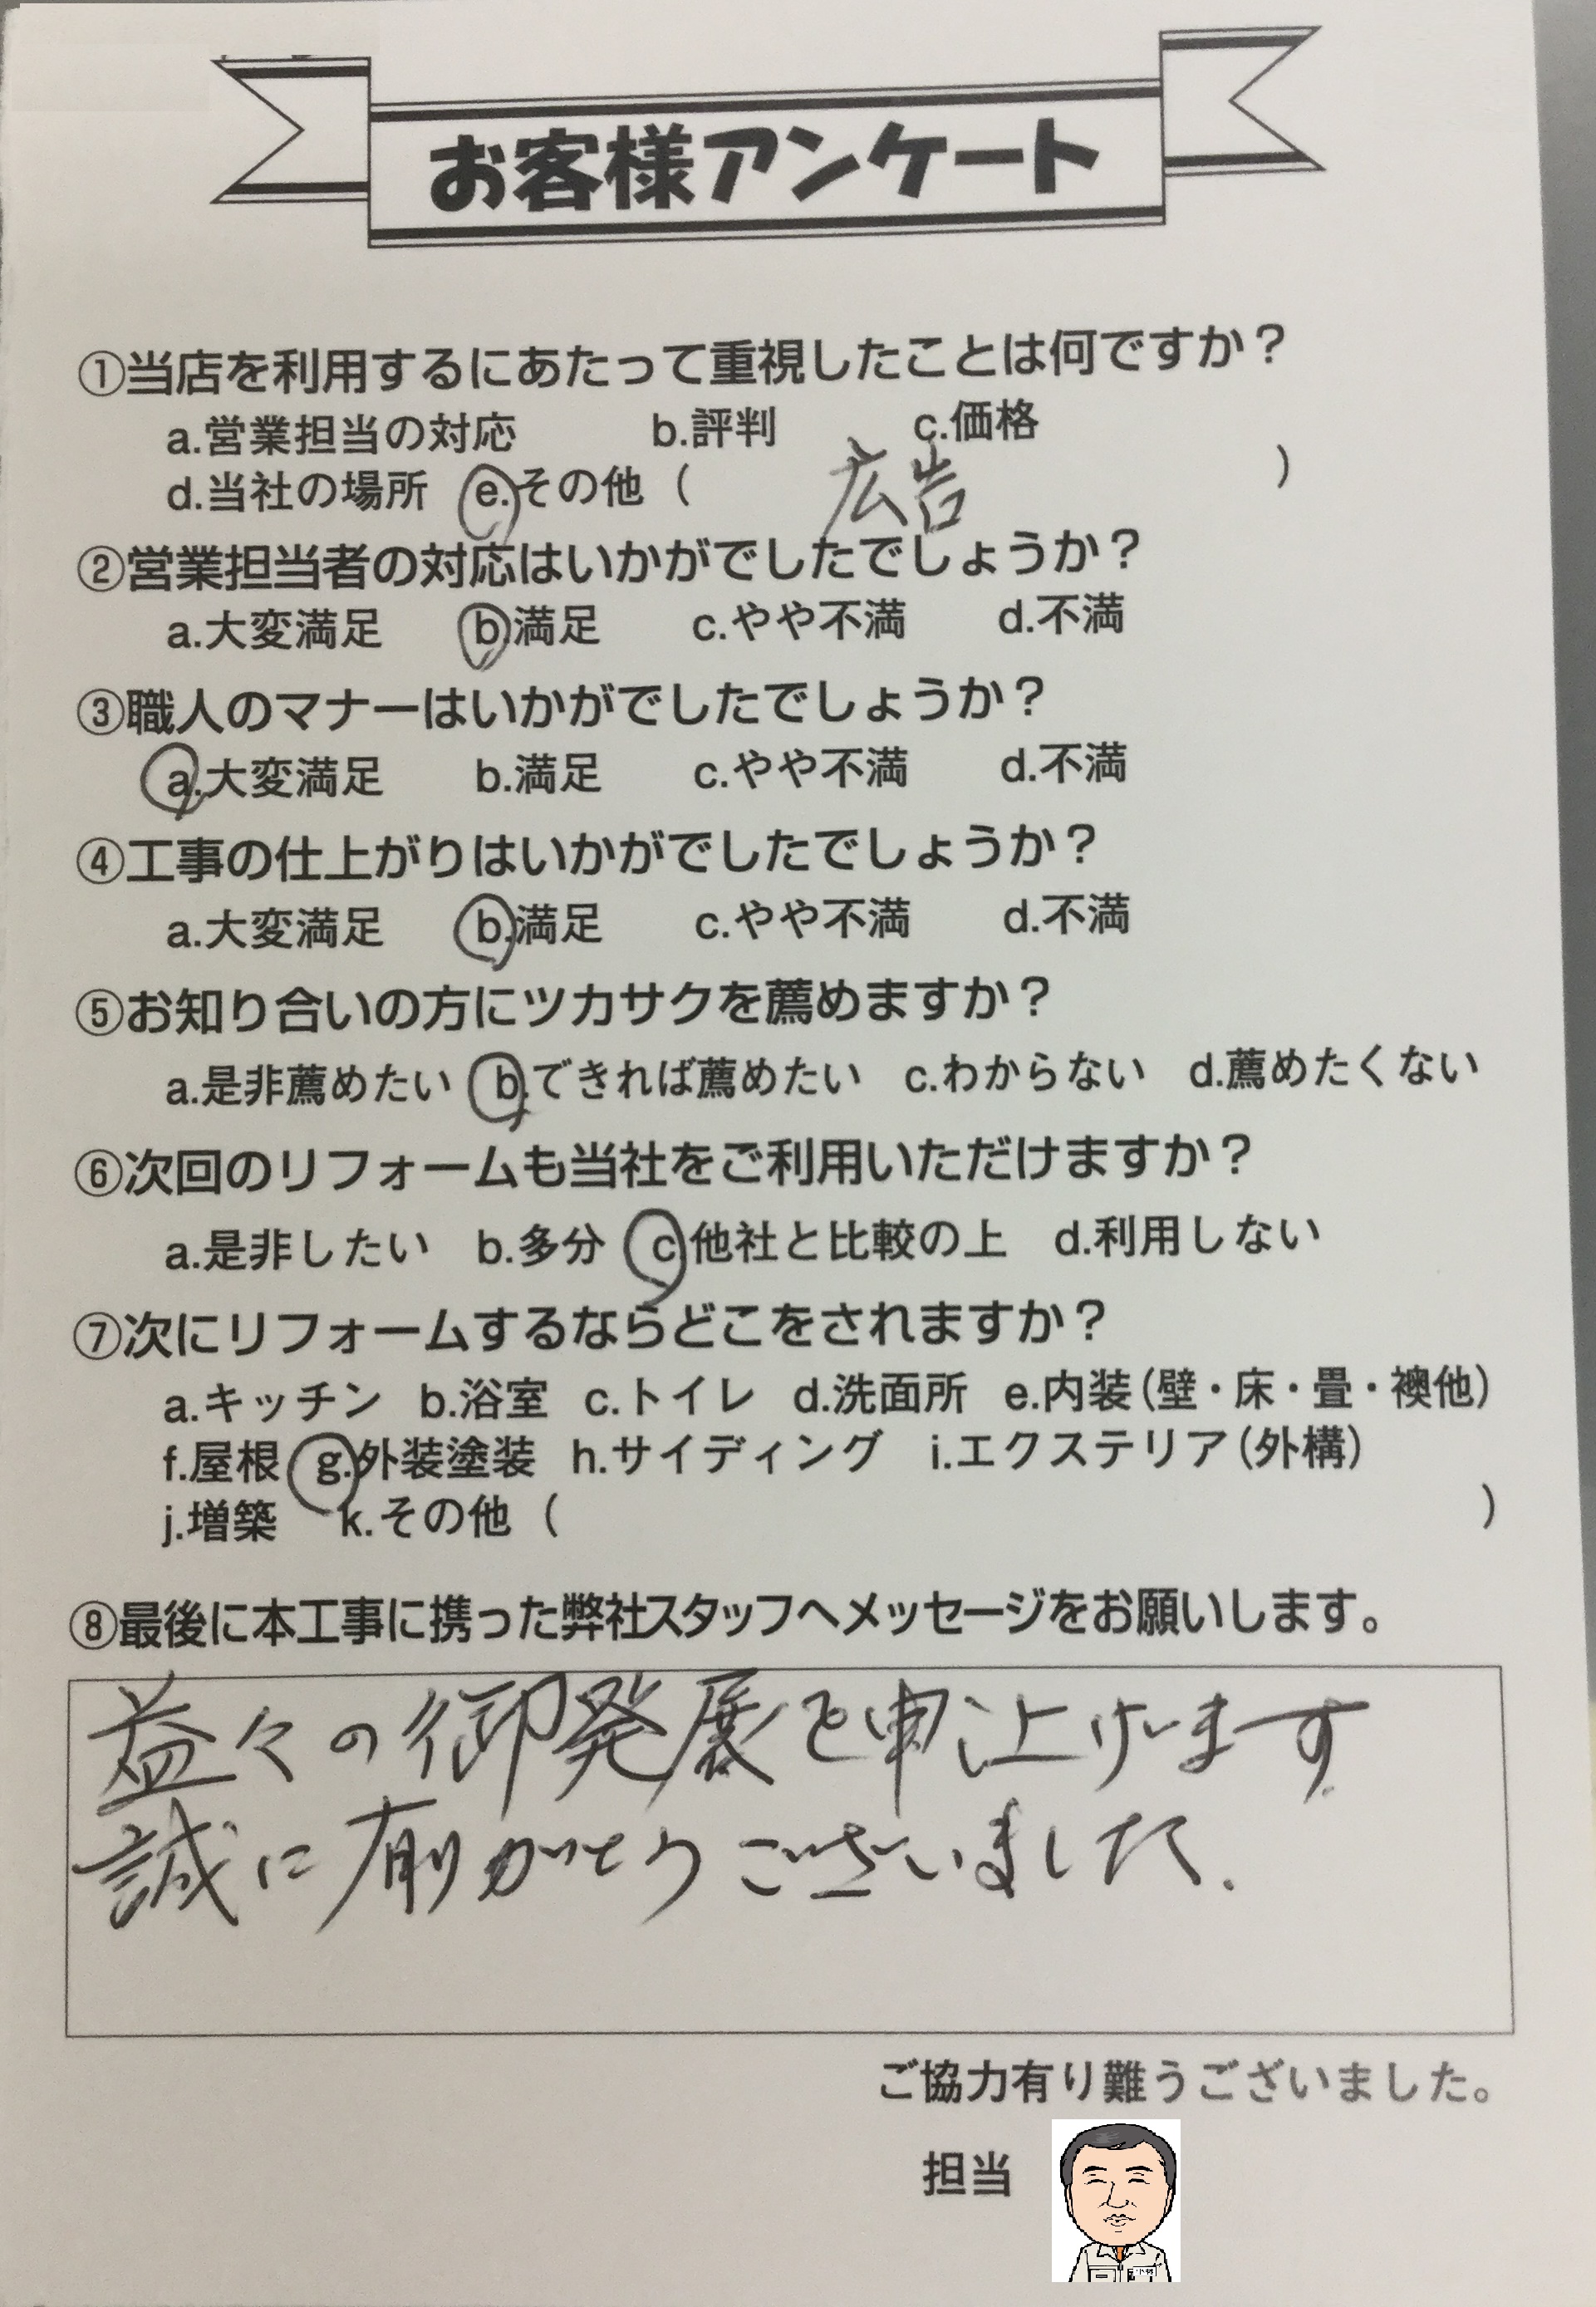 お客様アンケート
①当店を利用するにあたって重視したことは何ですか？
a.営業担当の対応 b.評判 c.価格
d.当社の場所 e.その他（ 広告 ）
②営業担当者の対応はいかがでしたでしょうか？
a.大変満足 b.満足 c.やや不満 d.不満
③職人のマナーはいかがでしたでしょうか？
a.大変満足 b.満足 c.やや不満 d.不満
④工事の仕上がりはいかがでしたでしょうか？
a.大変満足 b.満足 c.やや不満 d.不満
⑤お知り合いの方にツカサクを薦めますか？
a.是非薦めたい b.できれば薦めたい c.わからない d.薦めたくない
⑥次回のリフォームも当社をご利用いただけますか？
a.是非したい b.多分 c.他社と比較の上 d.利用しない
⑦次にリフォームするならどこをされますか？
a.キッチン b.浴室 c.トイレ d.洗面所 e.内装（壁・床・畳・襖他）
f.屋根 g.外装塗装 h.サイディング i.エクステリア（外構）
j.増築 k.その他（ ）
⑧最後に本工事に携った弊社スタッフへメッセージをお願いします。
益々の御発展を申し上げます
誠に有りがとうございました.
ご協力有り難うございました。
担当